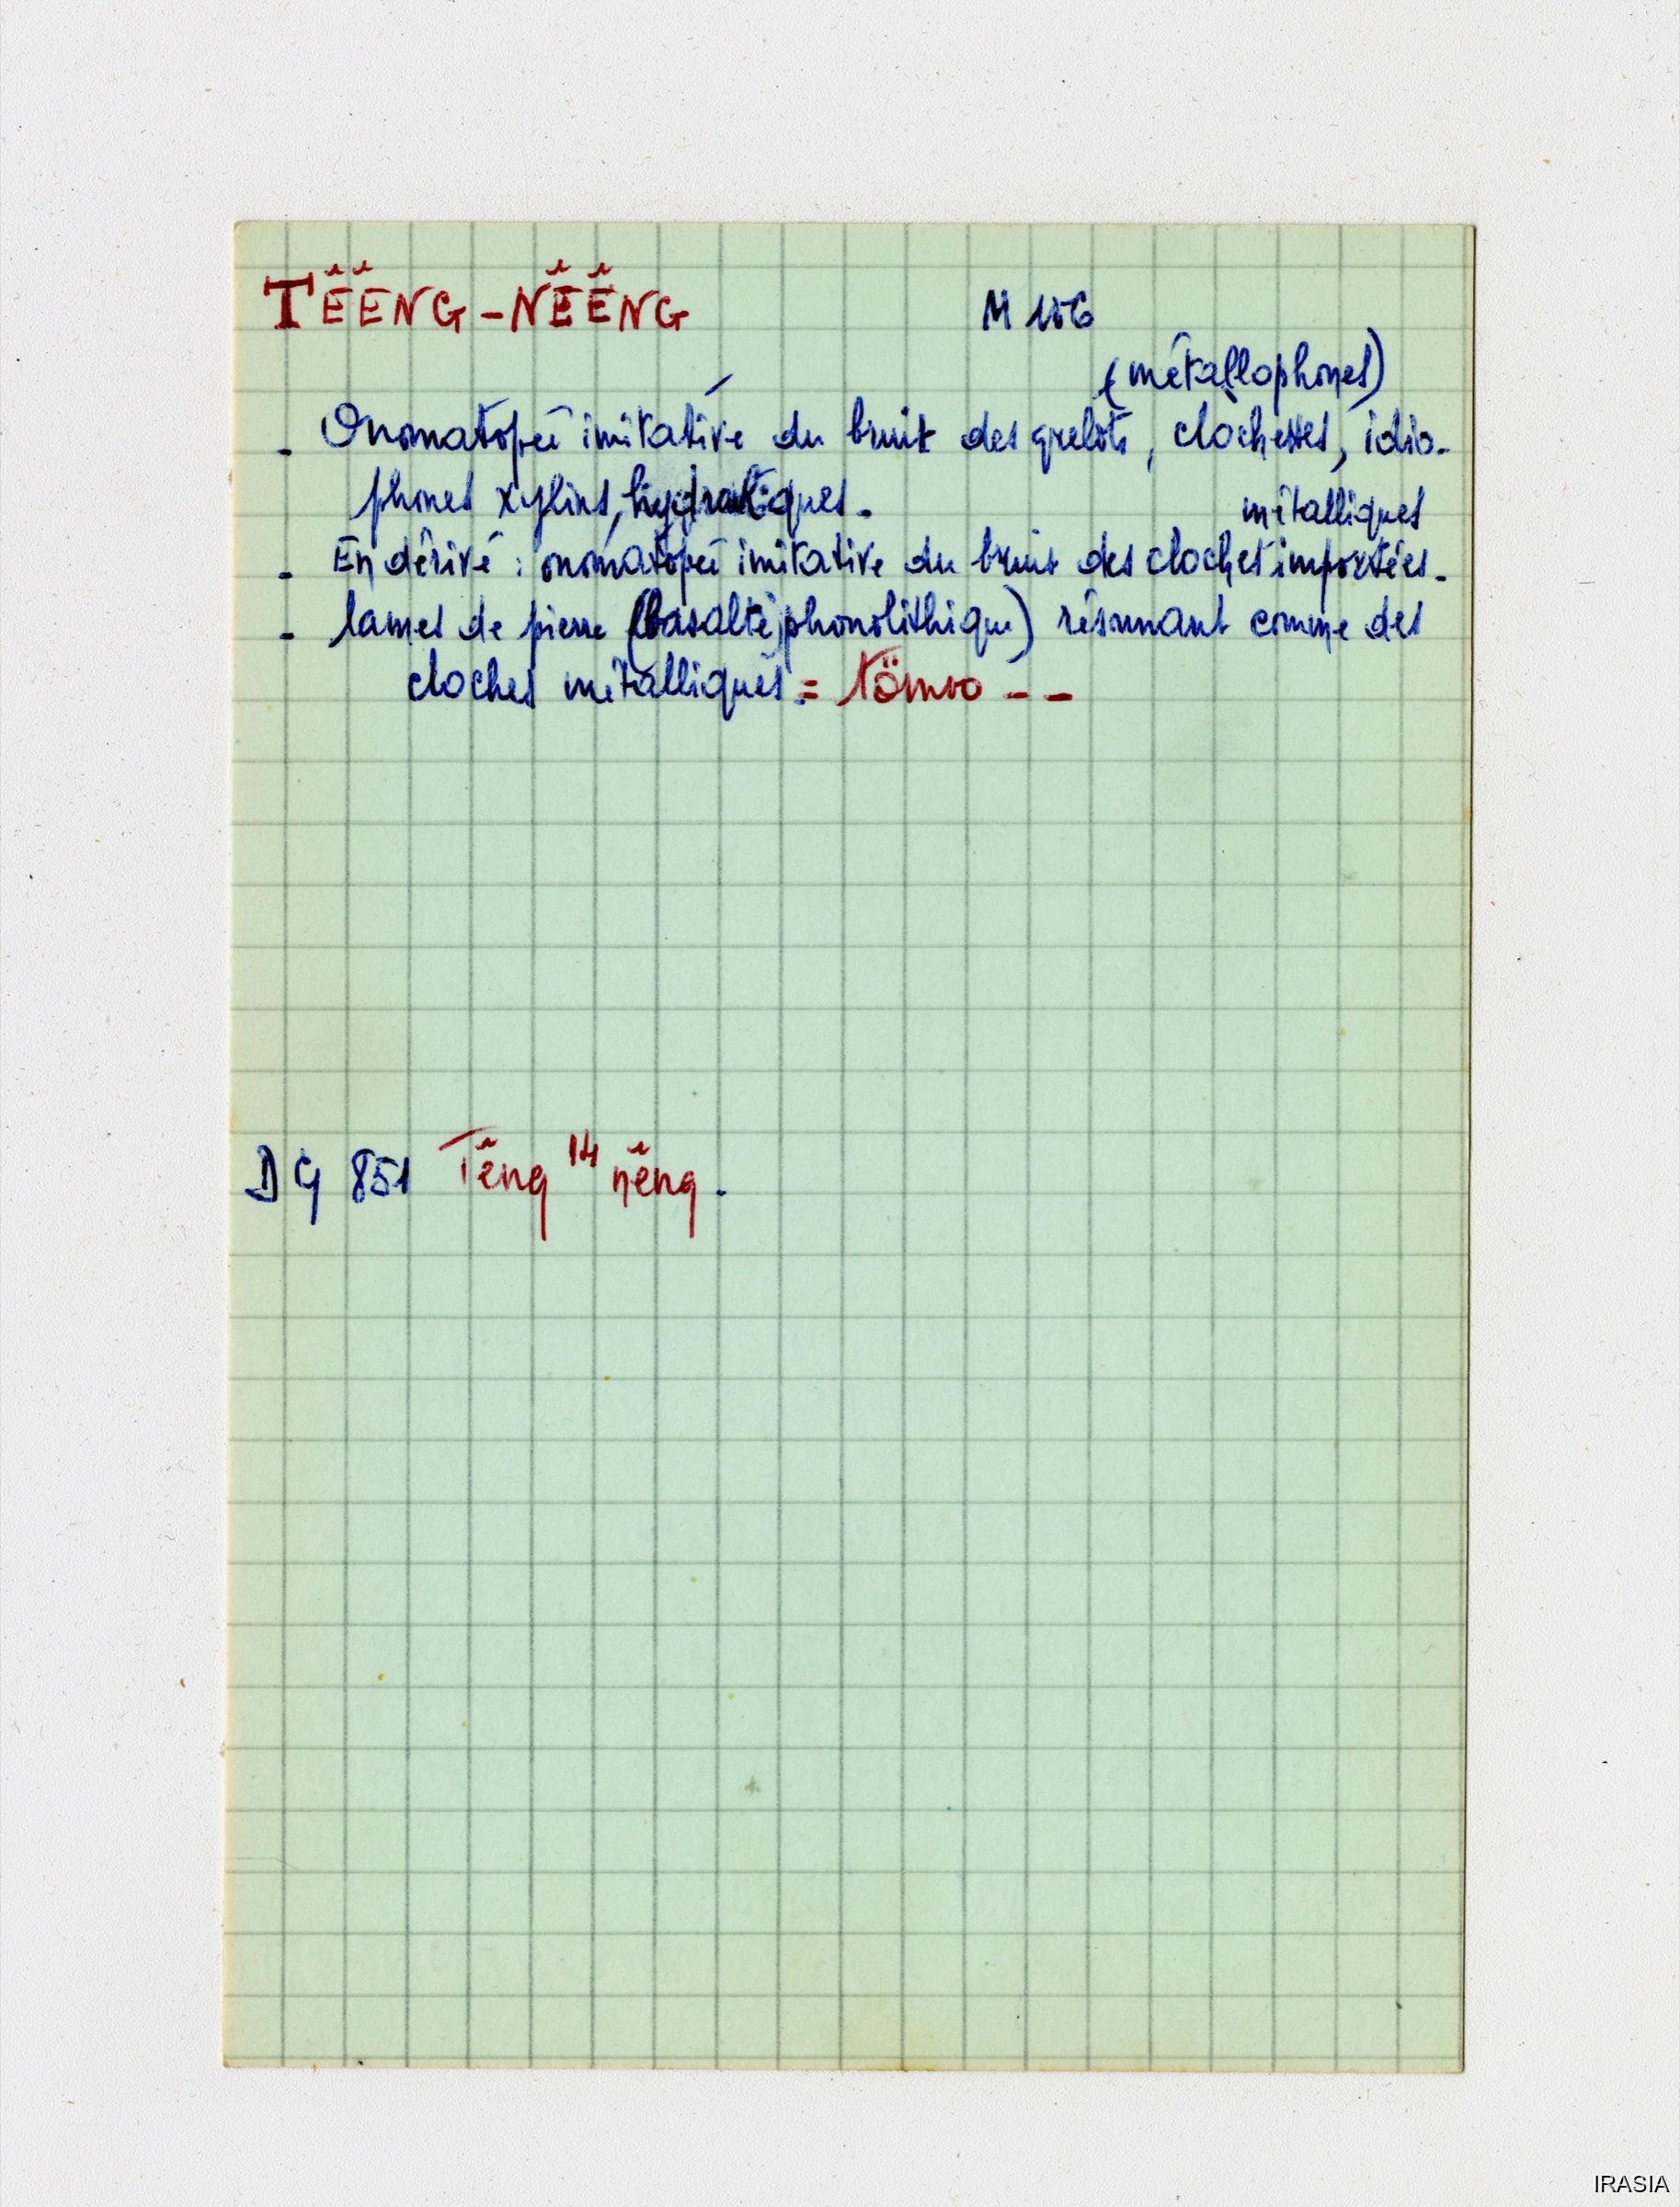 TĔĔNG-NĔĔNG M 156
(métallophones)
- Onomatopée imitative du bruit des grelots, clochettes, idio-
phones xylins, hydrauliques.
métalliques
- En dérivé : onomatopée imitative du bruit des cloches importées.
- lames de pierre (basalte phonolithique) résonnant comme des
cloches métalliques = Tömoo - -
DG 851 Tĕng 14 nĕng.
IRASIA